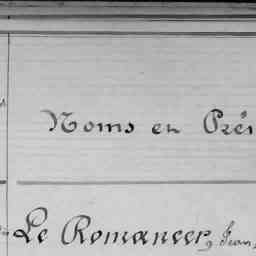 Noms en Pré
Le Romancer, Jean,